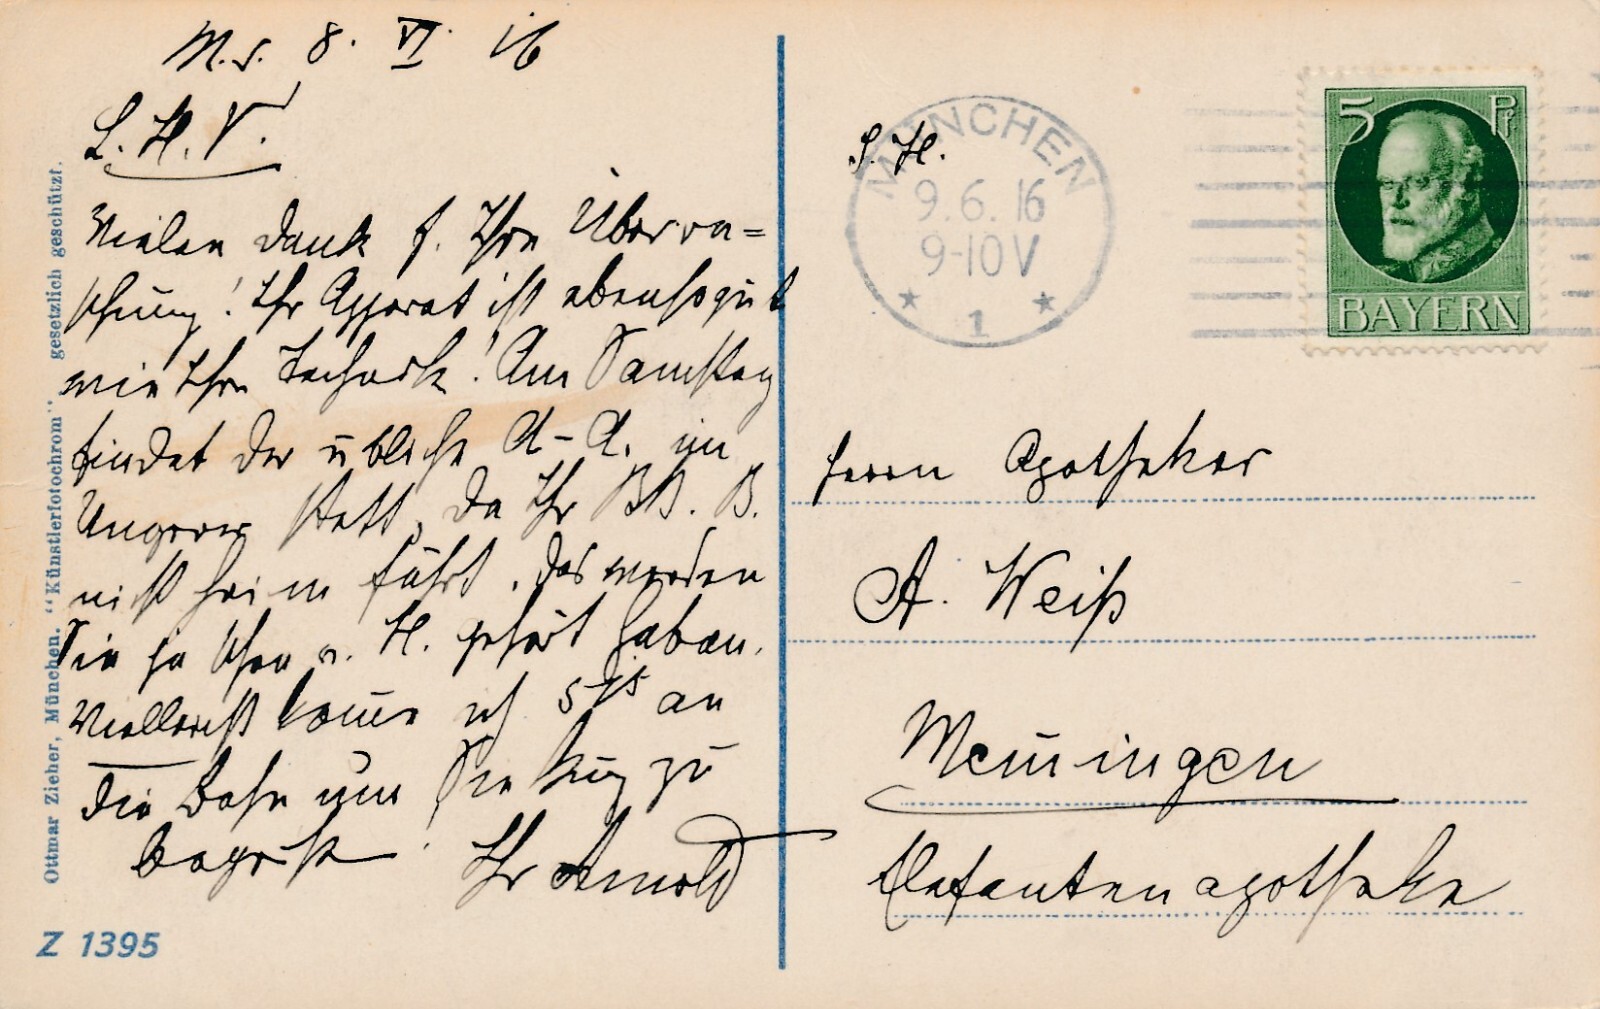 M. d. 8. VI. 16
L. H. V.
Vielen Dank f. Ihre Überra=
schung! Ihr Apparat ist ebensogut
wie Ihre Technik! Am Samstag
findet der übliche A-A. im
Ungerer statt, da Ihr BB. B.
nicht heim fährt. Das werden
Sie ja schon v. H. gehört haben.
Vielleicht komme ich 5 an
die Bahn um Sie kurz zu
begrüßen. Ihr Arnold
Ottmar Zieher, München. "Künstlerfotochrom" gesetzlich geschützt.
Z 1395
S. H.
MÜNCHEN
9.6.16
9-10V
★ 1 ★
5 Pf
BAYERN
Herrn Apotheker
A. Weiß
Memmingen
Elefantenapotheke